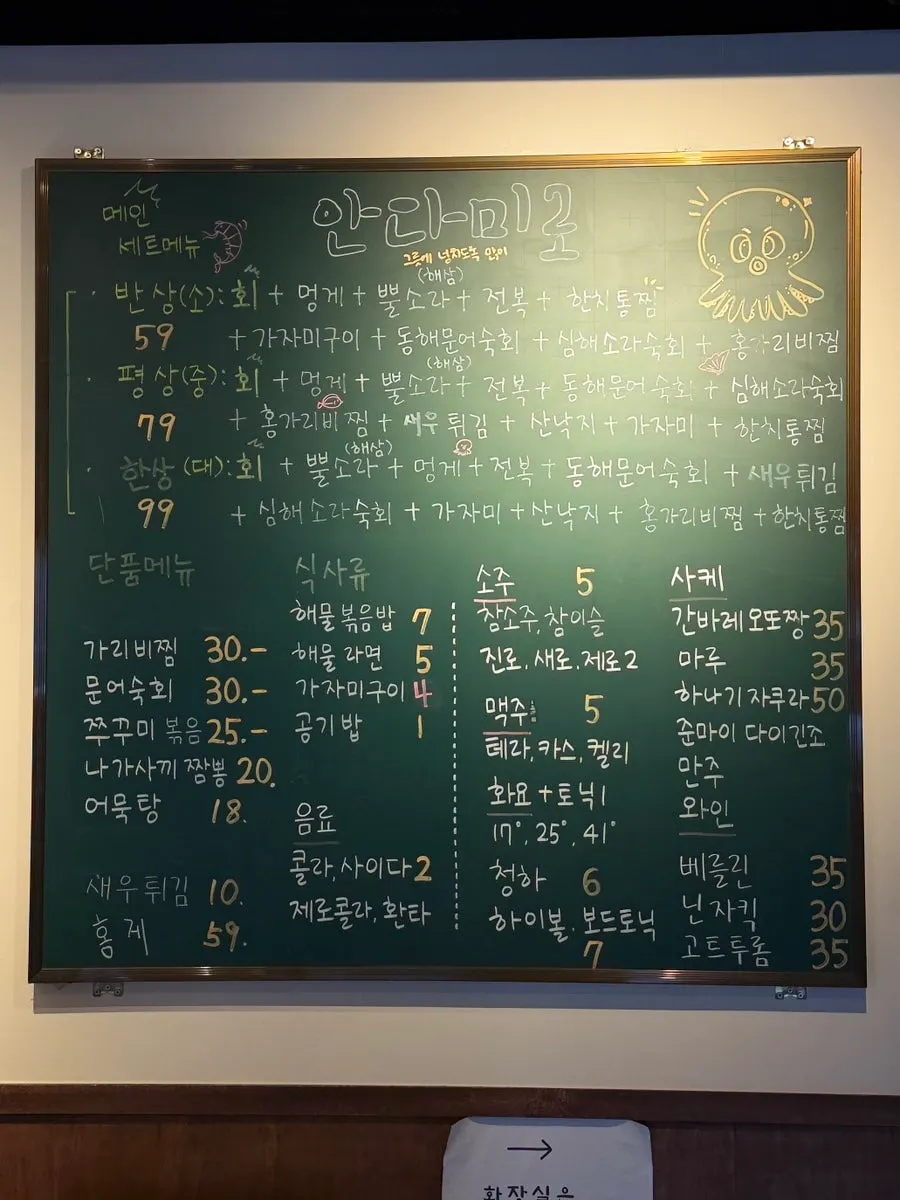 메인
세트메뉴
안다미로
그릇에 넘치도록 많이
(해삼)
반상(소): 회 + 멍게 + 뿔소라 + 전복 + 한치통찜
59 + 가자미구이 + 동해문어숙회 + 심해소라숙회 + 홍가리비찜
(해삼)
평상(중): 회 + 멍게 + 뿔소라 + 전복 + 동해문어숙회 + 심해소라숙회
79 + 홍가리비찜 + 새우튀김 + 산낙지 + 가자미 + 한치통찜
(해삼)
한상(대): 회 + 뿔소라 + 멍게 + 전복 + 동해문어숙회 + 새우튀김
99 + 심해소라숙회 + 가자미 + 산낙지 + 홍가리비찜 + 한치통찜
단품메뉴
가리비찜 30.-
문어숙회 30.-
쭈꾸미볶음 25.-
나가사끼짬뽕 20.
어묵탕 18.
새우튀김 10.
홍게 59.
식사류
해물볶음밥 7
해물라면 5
가자미구이 4
공기밥 1
음료
콜라, 사이다 2
제로콜라, 환타
소주 5
참소주, 참이슬
진로, 새로, 제로2
맥주: 5
테라, 카스, 켈리
화요 + 토닉1
17°, 25°, 41°
청하 6
하이볼. 보드토닉
7
사케
간바레오또짱 35
마루 35
하나기자쿠라 50
준마이 다이긴조
만주
와인
베를린 35
닌자킥 30
고트투롬 35
→
화장실은